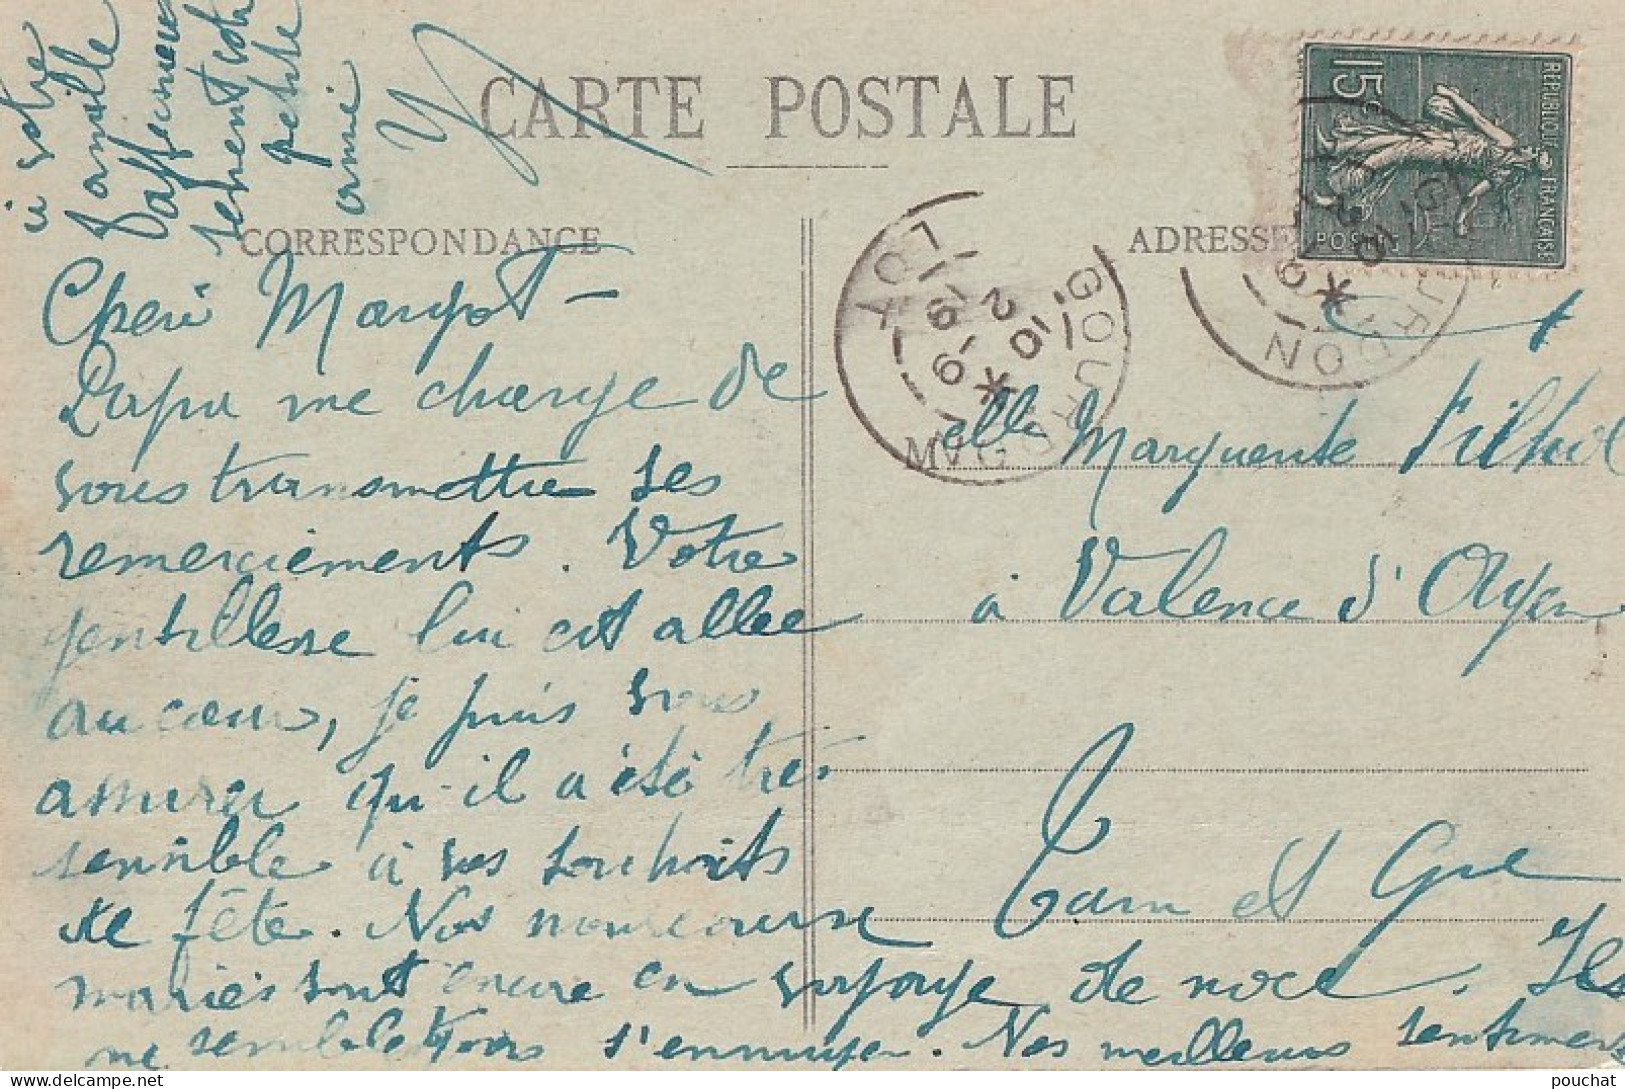 CARTE POSTALE
CORRESPONDANCE
ADRESSE
RÉPUBLIQUE FRANÇAISE
15c
POSTES
GOURDON
LOT
10
2
19-9
GOURDON
Cheri Margot –
Papa me charge de
vous transmettre ses
remerciements. Votre
gentillesse lui est allee
au cœur, je puis vous
assurer qu'il a été très
sensible à vos souhaits
de fête. Nos nouveaux
mariés sont encore en voyage de noce. Ils
ne semblent pas s'ennuyer. Nos meilleurs sentiments
à votre
famille
Affectueuse
sement votre
petite
amie
Y
elle Marguerite Filhol
à Valence d'Agen
Tarn et Gne
pouchat